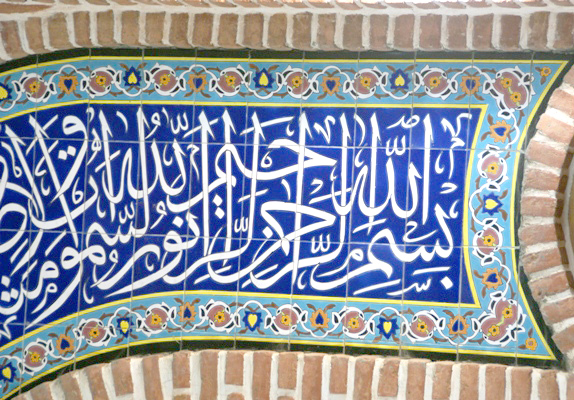 بسم الله الرحمن الرحيم الله نور السموات والارض